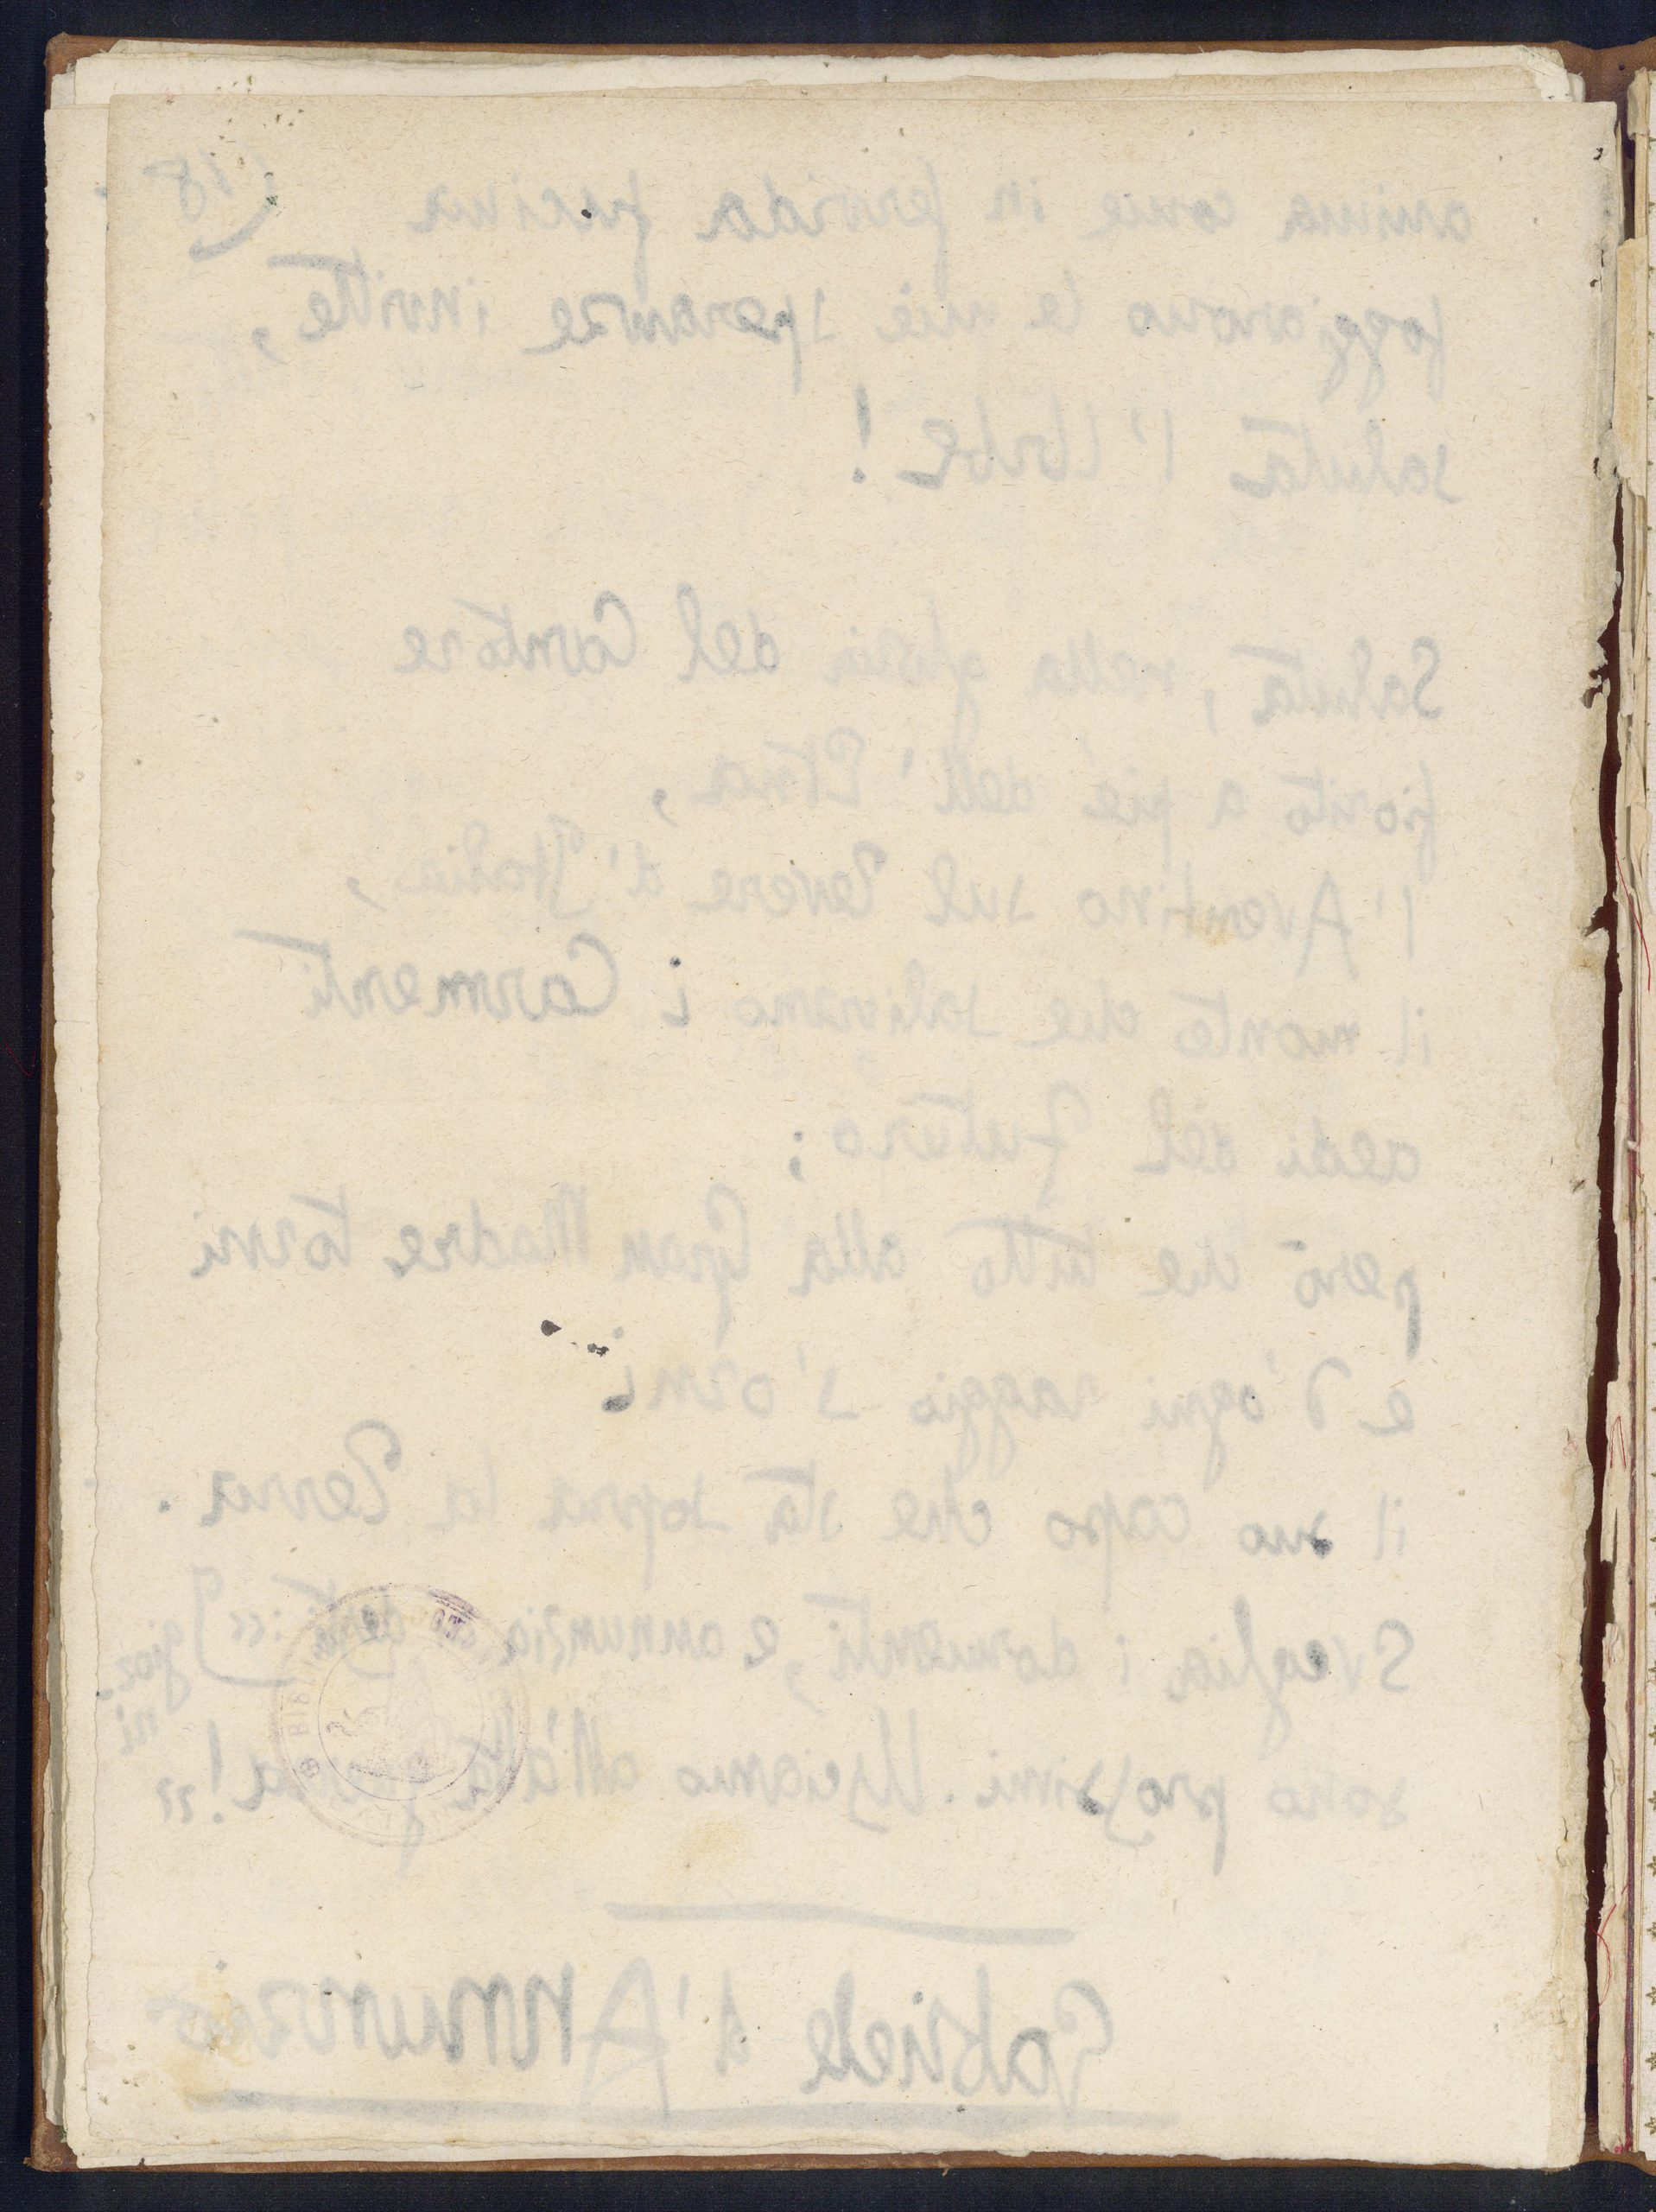 anima come in fervida fucina (18
foggiarono le mie speranze invitte,
saluta l'Urbe!
Saluta, nella gloria del Cantore
fiorito a piè dell'Etna,
l'Aventino sul Tevere d'Italia,
il monte che salivano i Carmenti
aedi del Futuro;
però che tutto alla Gran Madre torni
e d'ogni raggio s'orni
il suo capo che sta sopra la Terra.
Sveglia i dormenti, e annunzia ai desti: «I gior-
ni
sono prossimi. Usciamo all'alta guerra!»
Gabriele d'Annunzio
BIBLI